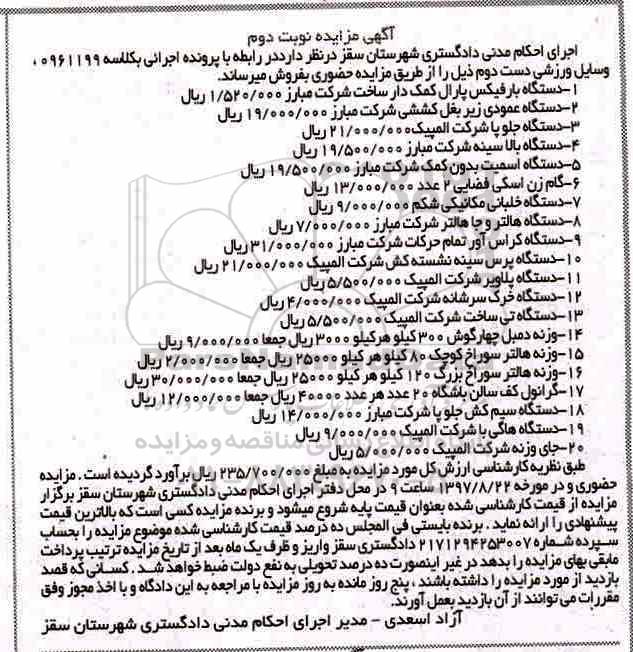 آگهی مزایده نوبت دوم
اجرای احکام مدنی دادگستری شهرستان سقز درنظر دارددر رابطه با پرونده اجرائی بکلاسه ۰۹۶۱۱۹۹ ،
وسایل ورزشی دست دوم ذیل را از طریق مزایده حضوری بفروش میرساند.
۱-دستگاه بارفیکس پارال کمک دار ساخت شرکت مبارز ۱/۵۲۰/۰۰۰ ریال
۲-دستگاه عمودی زیر بغل کششی شرکت مبارز ۱۹/۰۰۰/۰۰۰ ریال
۳-دستگاه جلو پا شرکت المپیک۲۱/۰۰۰/۰۰۰ ریال
۴-دستگاه بالا سینه شرکت مبارز ۱۹/۵۰۰/۰۰۰ ریال
۵-دستگاه اسمیت بدون کمک شرکت مبارز ۱۹/۵۰۰/۰۰۰ ریال
۶-گام زن اسکی فضایی ۲ عدد ۱۳/۰۰۰/۰۰۰ ریال
۷-دستگاه خلبانی مکانیکی شکم ۹/۰۰۰/۰۰۰ ریال
۸-دستگاه هالتر و جا هالتر شرکت مبارز ۷/۰۰۰/۰۰۰ ریال
۹-دستگاه کراس آور تمام حرکات شرکت مبارز ۳۱/۰۰۰/۰۰۰ ریال
۱۰-دستگاه پرس سینه نشسته کش شرکت المپیک ۲۱/۰۰۰/۰۰۰ ریال
۱۱-دستگاه پلاویر شرکت المپیک ۵/۵۰۰/۰۰۰ ریال
۱۲-دستگاه خرک سرشانه شرکت المپیک ۴/۰۰۰/۰۰۰ ریال
۱۳-دستگاه تی ساخت شرکت المپیک ۵/۵۰۰/۰۰۰ ریال
۱۴-وزنه دمبل چهارگوش ۳۰۰ کیلو هرکیلو ۳۰۰۰ ریال جمعا ۹/۰۰۰/۰۰۰ ریال
۱۵-وزنه هالتر سوراخ کوچک ۸۰ کیلو هر کیلو ۲۵۰۰۰ ریال جمعا ۲/۰۰۰/۰۰۰ ریال
۱۶-وزنه هالتر سوراخ بزرگ ۱۲۰ کیلو هر کیلو ۲۵۰۰۰ ریال جمعا ۳۰/۰۰۰/۰۰۰ ریال
۱۷-گرانول کف سالن باشگاه ۲۰ عدد هر عدد ۴۰۰۰۰ ریال جمعا ۱۲/۰۰۰/۰۰۰ ریال
۱۸-دستگاه سیم کش جلو پا شرکت مبارز ۱۴/۰۰۰/۰۰۰ ریال
۱۹-دستگاه هاگی پا شرکت المپیک ۹/۰۰۰/۰۰۰ ریال
۲۰-جای وزنه شرکت المپیک ۵/۰۰۰/۰۰۰ ریال
طبق نظریه کارشناسی ارزش کل مورد مزایده به مبلغ ۲۳۵/۷۰۰/۰۰۰ ریال برآورد گردیده است . مزایده
حضوری و در مورخه ۱۳۹۷/۸/۲۲ ساعت ۹ در محل دفتر اجرای احکام مدنی دادگستری شهرستان سقز برگزار
مزایده از قیمت کارشناسی شده بعنوان قیمت پایه شروع میشود و برنده مزایده کسی است که بالاترین قیمت
پیشنهادی را ارائه نماید . برنده بایستی فی المجلس ده درصد قیمت کارشناسی شده موضوع مزایده را بحساب
سپرده شماره ۲۱۷۱۲۹۴۲۵۳۰۰۷ دادگستری سقز واریز و ظرف یک ماه بعد از تاریخ مزایده ترتیب پرداخت
مابقی بهای مزایده را بدهد در غیر اینصورت ده درصد تحویلی به نفع دولت ضبط خواهد شد . کسانی که قصد
بازدید از مورد مزایده را داشته باشند ، پنج روز مانده به روز مزایده با مراجعه به این دادگاه و با اخذ مجوز وفق
مقررات می توانند از آن بازدید بعمل آورند.
آزاد اسعدی - مدیر اجرای احکام مدنی دادگستری شهرستان سقز